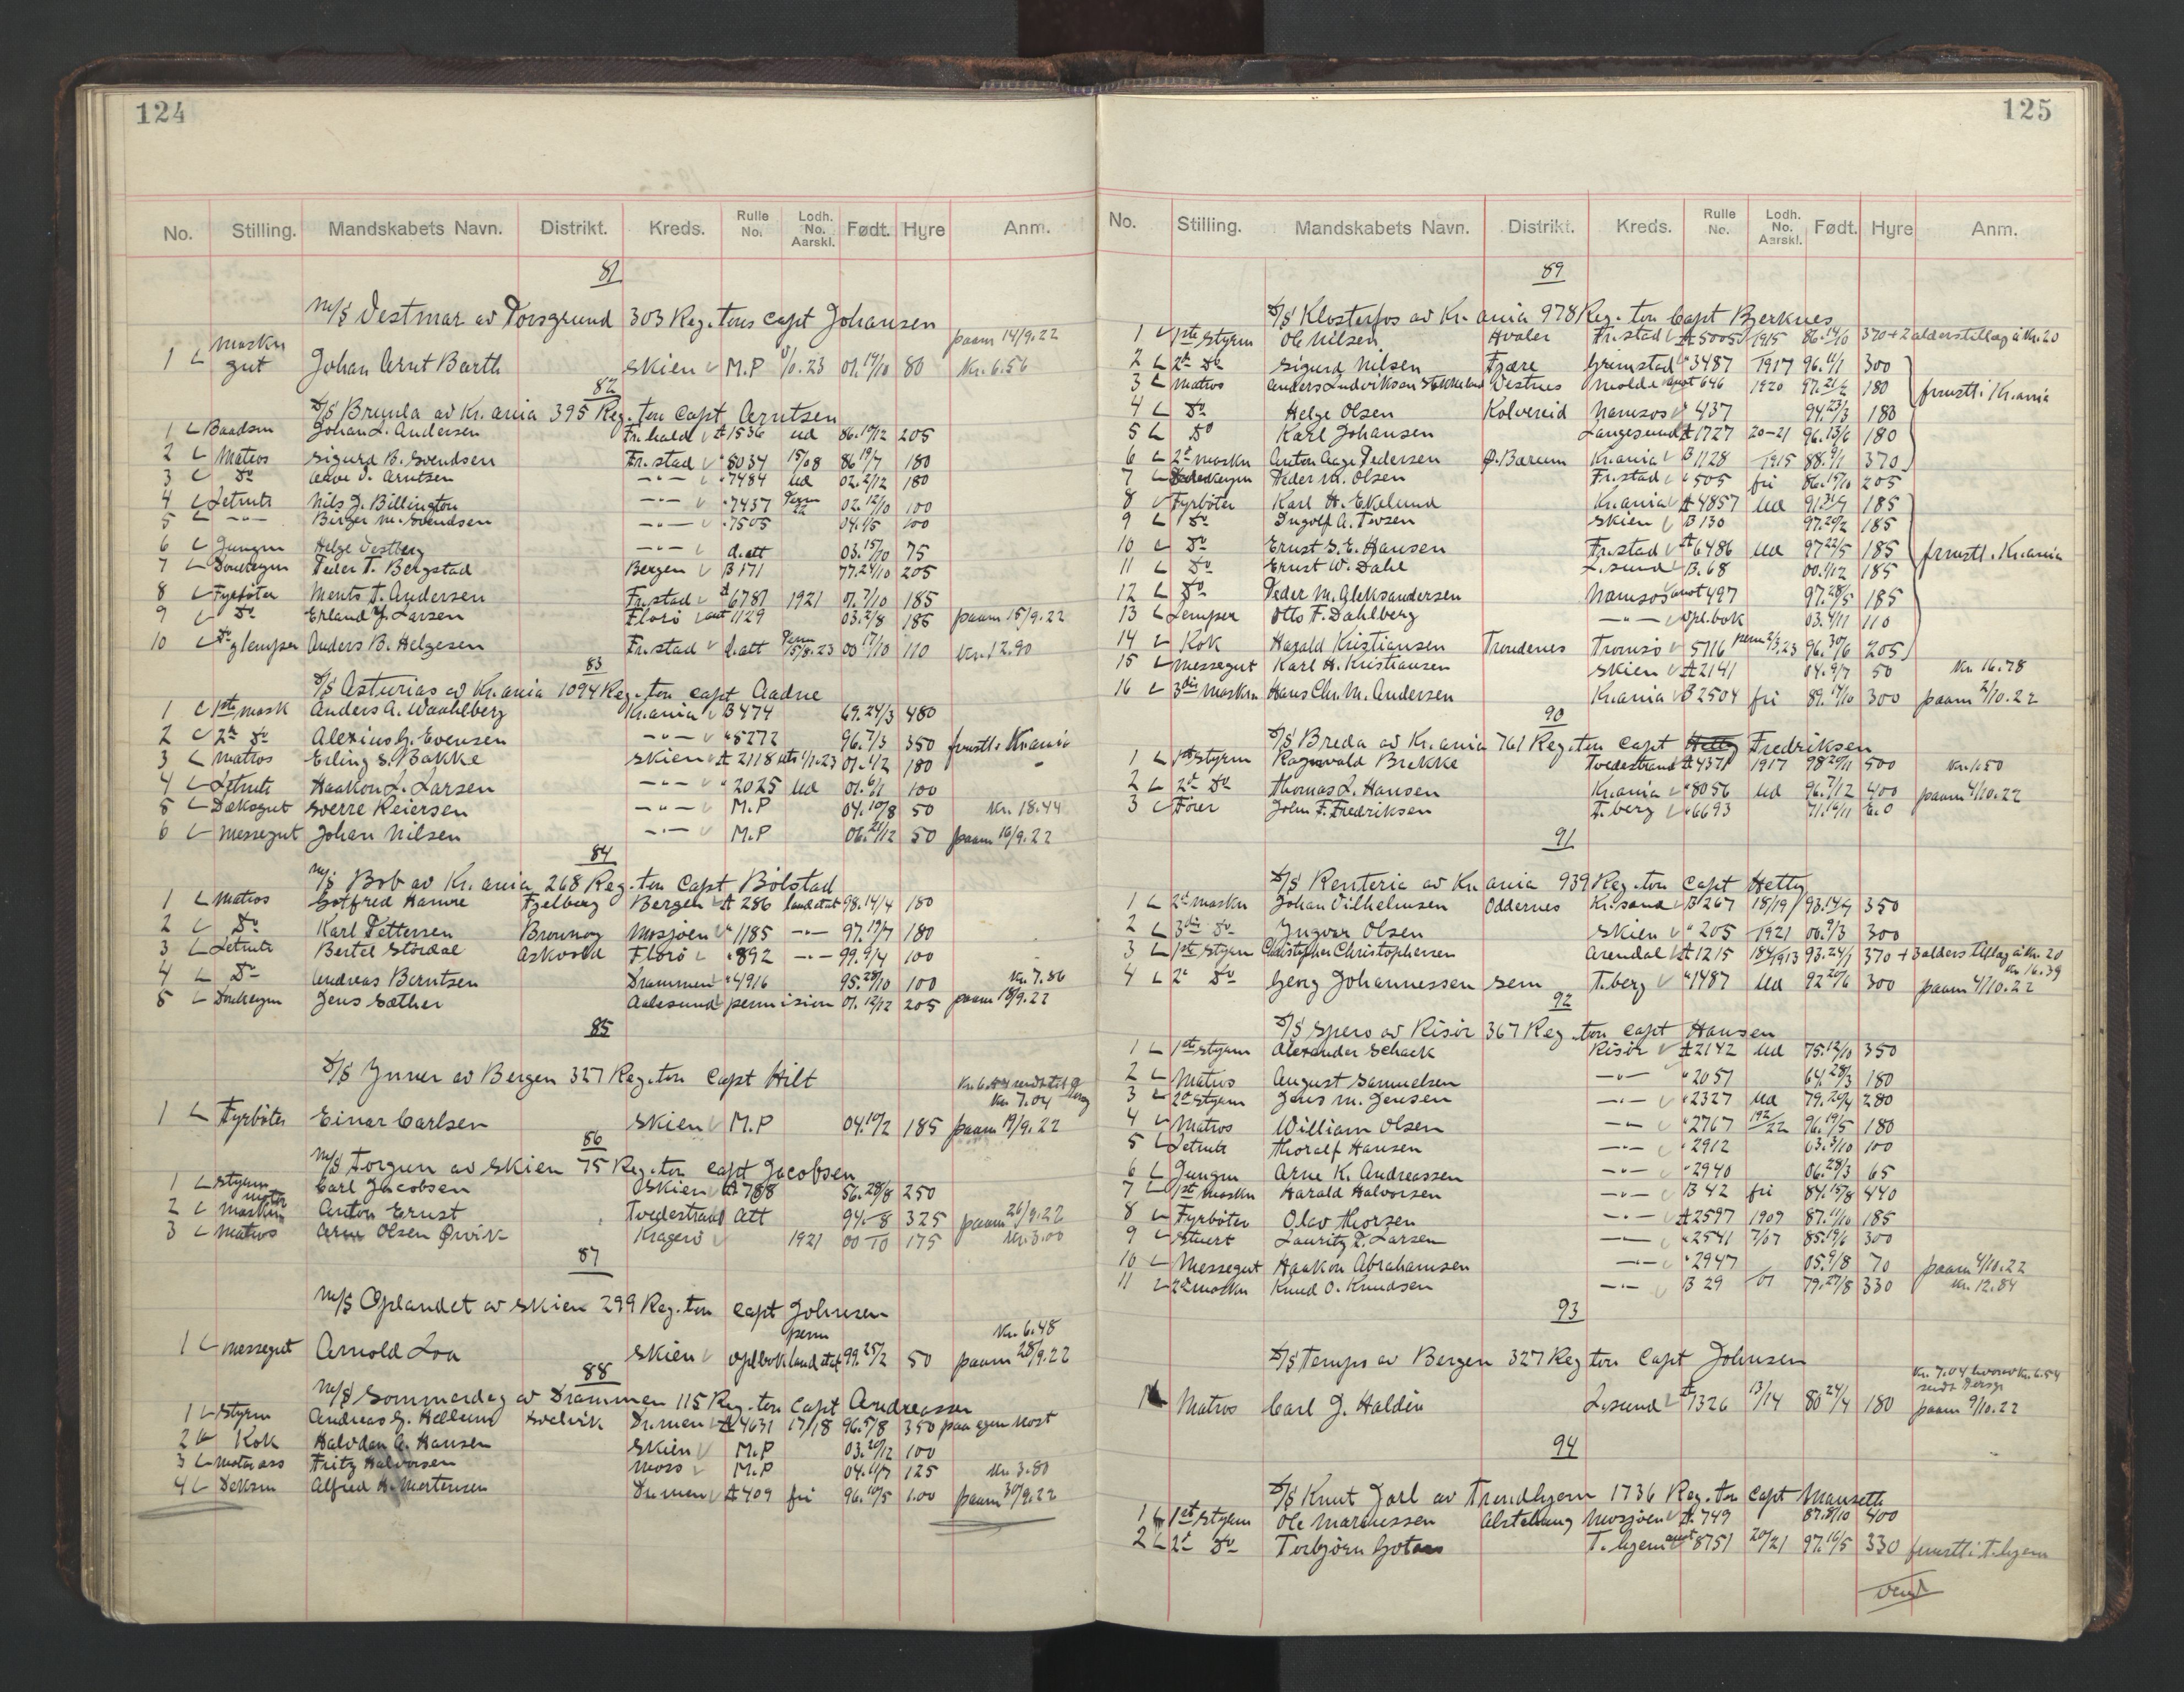 124
No. Stilling. Mandskabets Navn. Distrikt. Kreds. Rulle No. Lodh. No. Aarskl. Født. Hyre Anm.
81
M/S Vestmar av Porsgrund 303 Reg. tons Capt Johansen
1 Maskn gut Johan Arnt Barth Skien M.P 1/10.23 01.19/10 80 paam 14/9.22 Kr. 6.56
82
D/S Brynla av Kr.ania 395 Reg. ton Capt Arntsen
1 Baadsm Johan L. Andersen Fr.hald A 1536 ud 86.19/12 205
2 Matros Sigurd B. Svendsen Fr.stad " 5034 15/08 86 19/7 180
3 Do Aave J. Arntsen —"— " 7484 Ud 02.2/12 180
4 Letmtr Nils J. Billington —"— " 7437 Perm 22 02.12/10 100
5 —"— Birger M. Svendsen —"— " 7505 04.1/5 100
6 Jungm Helge Vestberg —"— d.att 03.15/10 75
7 Donkeym Peder T. Bergstad Bergen B 171 77.24/10 205
8 Fyrbøter Ments T. Andersen Fr.stad A 6781 1921 01.7/10 185
9 Do Erland J. Larsen Florø ant 1129 03.2/8 185 paam 15/9.22
10 Do glemper Anders B. Helgesen Fr.stad d.att Perm 15/8.23 00 17/10 110 Kr. 12.90
83
D/S Asturias av Kr.ania 1094 Reg. ton Capt Aadne
1 1ste mask Anders A. Waahlberg Kr.ania B 474 69.24/3 480
2 2n Do Alexius G. Evensen —"— " 5272 96.7/3 350 frmstl. Kr.ania
3 Matros Erling S. Bakke Skien A 2118 uts 1/1.23 01.4/2 180
4 Letmtr Haakon L. Larsen —"— " 2025 Ud 01.6/1 100
5 Daksgut Sverre Reiersen —"— M.P 04.10/8 50 Kr. 18.44
6 Messegut Johan Nilsen —"— M.P 06.21/12 50 paam 16/9.22
84
M/S Bob av Kr.ania 268 Reg. ton Capt Bølstad
1 Matros Gotfred Hamre Fjelberg Bergen A 286 landstat 98.14/4 180
2 Do Karl Pettersen Brønnøy Mosjøen " 1185 —"— 97.19/7 180
3 Letmtr Bertil Stordal Askvoll Florø " 892 —"— 99.9/4 100
4 Do Andreas Berntsen Drammen " 4916 95.28/10 100 Kr. 7.86
5 Donkeym Jens Sæther Aalesund permision 01.12/12 205 paam 18/9.22
85
D/S Ymer av Bergen 327 Reg. ton Capt Hilt
Kr. 7.04
1 Fyrbøter Einar Carlsen Skien M.P 04.10/2 185 paam 19/9.22
86
M/S Torgun av Skien 75 Reg. ton Capt Jacobsen
1 Styrm Carl Jacobsen Skien A 788 56.28/8 250
2 motor maskm Anton Ernst Tvedestrand Att 94.–8 325 paam 26/9.22
3 Matros Arne Olsen Qvik Kragerø 1921 00 10 175 Kr. 3.00
87
M/S Oplandet av Skien 299 Reg. ton Capt Johnsen
1 Messegut Arnold Loa Skien oplbok perm landstat 99.25/2 50 Kr. 6.48 paam 28/9.22
88
M/S Sommerdag av Drammen 115 Reg. ton Capt Andreassen
1 Styrm Andreas G. Hellum Svelvik Dr.men A 4631 17/18 96.5/8 350 paa egen kost
2 Kok Halvdan A. Hansen Skien M.P 03.20/12 100
3 Motorass Fritz Halvorsen Moss M.P 04.11/7 125 Kr. 3.80
4 Deksm Alfred H. Mortensen Dr.men A 409 fri 96.10/5 1.00 paam 30/9.22
125
No. Stilling. Mandskabets Navn. Distrikt. Kreds. Rulle No. Lodh. No. Aarskl. Født. Hyre Anm.
89
D/S Klosterfos av Kr.ania 978 Reg. ton Capt Bjerknes
1 1ste Styrm Ole Nilsen Hvaler Fr.stad A 5005 1915 86.14/10 370 + 2 alderstillæg à Kr. 20
2 2n Do Sigurd Nilsen Fjære Grimstad " 3487 1917 96.11/1 300
3 Matros Anders Ludvikson Vestnes Molde ant 646 1920 97.21/2 180 frmstl. i Kr.ania
4 Do Helge Olsen Kolvereid Namsos " 437 94 23/3 180
5 Do Karl Johansen Langesund A 1727 20-21 96.13/6 180
6 2n Maskn Anton Aage Pedersen Ø. Bærum Kr.ania B 1128 1915 88.9/1 370
7 Donkeym Peder M. Olsen Fr.stad " 505 fri 86.15/10 205
8 Fyrbøter Karl H. Ekelund Kr.ania A 4857 Ud 91.31/7 185
9 Do Ingolf A. Iversen Skien B 130 97.20/2 185
10 Do Ernst S.E. Hansen Fr.stad A 6486 Ud 97 22/5 185 frmstl. Kr.ania
11 Do Ernst W. Dahl L.sund B. 68 00.1/12 185
12 Do Peder M. Aleksandersen Namsos ant 497 97.28/5 185
13 Lemper Otto F. Dahlberg —"— opl.bok 03.4/11 110
14 Kok Harald Kristiansen Trondenes Tromsø " 5716 perm 2/3.23 96.30/6 205
15 Messegut Karl H. Kristiansen Skien A 2141 04.9/7 50 Kr. 16.78
16 3die Maskn Hans Chr. M. Andersen Kr.ania B 2504 fri 89.17/10 300 paam 2/10.22
90
D/S Breda av Kr.ania 761 Reg. ton Capt Hetty Fredriksen
1 1ste Styrm Ragnvald Brekke Tvedestrand A 4371 1917 98 20/11 500 Kr. 1.50
2 2n Do Thomas L. Hansen Kr.ania " 8056 Ud 96.7/12 400 paam 4/10.22
3 Fører John F. Fredriksen T.berg " 6693 71.16/11 E.O
91
D/S Renteria av Kr.ania 939 Reg. ton Capt Hetty
1 2n maskn Johan Vilhelmsen Oddernes Kr.sand B 267 18/19 93.14/7 350
2 3die Do Ingvar Olsen Skien " 205 1921 00.9/3 300
3 1ste Styrm Christopher Christophersen Arendal A 1215 184/1913 93.24/1 370 + 3 alders tillæg à Kr. 20
4 2n Do Georg Johannessen Sem T.berg " 1487 Ud 92 20/6 300 Kr. 16.39 paam 4/10.22
92
D/S Spero av Risør 367 Reg. ton Capt Hansen
1 1ste Styrm Alexander Schack Risør A 2142 Ud 75.12/10 350
2 Matros August Samuelsen —"— " 2051 64.28/3 180
3 2n Styrm Jens M. Jensen —"— " 2327 Ud 79.20/4 280
4 Matros William Olsen —"— " 2767 192/22 96.19/5 180
5 Letmtr Thoralf Hansen —"— " 2912 03.3/10 100
6 Jungm Arne K. Andreassen —"— " 2940 06.28/3 65
7 1st Maskn Harald Halvorsen —"— B 42 fri 84.15/8 440
8 Fyrbøter Olav Thorsen —"— A 2597 1909 87.11/10 185
9 Stuert Lauritz T. Larsen —"— " 2541 7/07 85.19/6 300
10 Messegut Haakon Abrahamsen —"— " 2947 05.9/8 70 paam 4/10.22
11 2n maskn Knud O. Knudsen —"— B 29 01 79.27/8 330 Kr. 12.84
93
D/S Tempo av Bergen 327 Reg ton Capt Johnsen
Kr. 7.04 hvorav Kr. 6.54
1 Matros Carl J. Haldin L.sund A 1326 13/14 80 24/4 180 paam 9/10.22
94
D/S Knut Jarl av Trondhjem 1736 Reg. ton Capt Manseth
1 1ste Styrm Ole Marcussen Alstahaug Mosjøen A. 749 87.8/10 400
2 2n Do Torbjørn Gotaas T.hjem ant 8751 20/21 97.16/5 330 frmstl i T.hjem
Vend